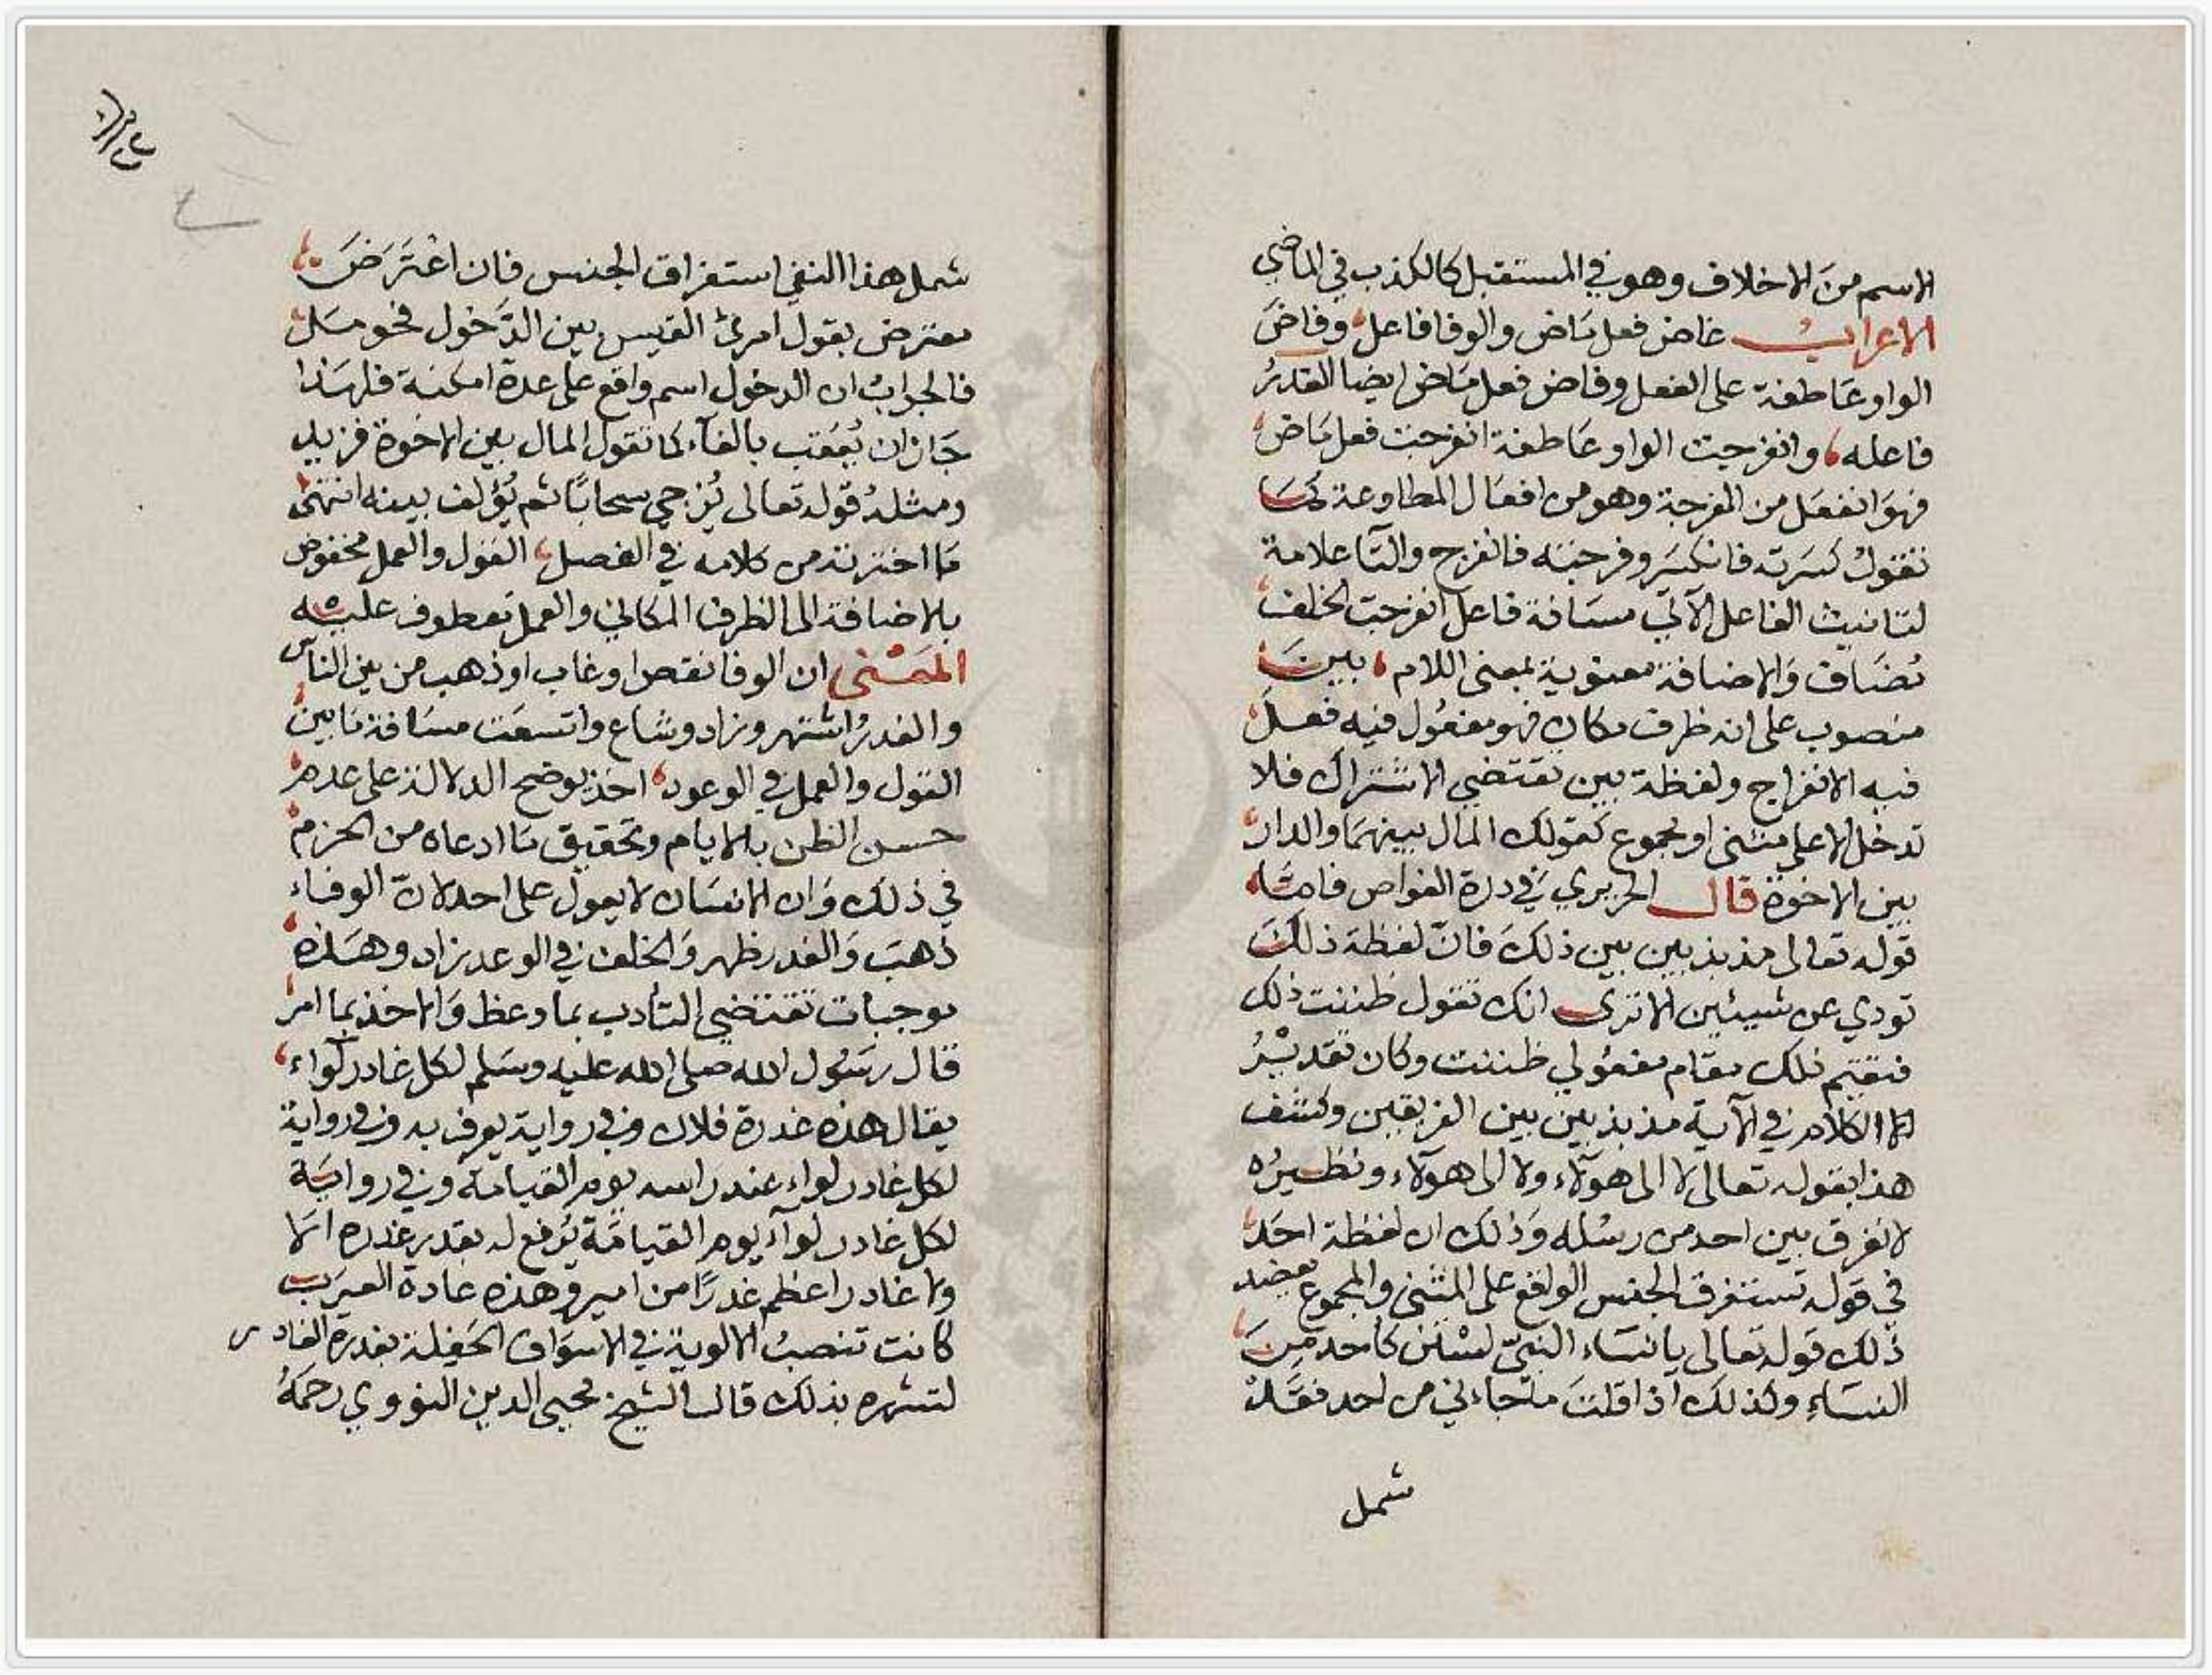 الاسم منَ الاخلاف وهو في المستقبل كالكذب في الماضي
الاعرابُ غاض فعل مَاض والوفا فاعل وفاضَ
الواو عَاطفة على الفعل وفاض فعل مَاض ايضا الغدرُ
فاعله وانفرجت الواو عَاطفة انفرجت فعل مَاض
فهوَ انفعَل من الفرجة وهو من افعَال المطاوعة كمَا
تقولُ كسَرته فانكسَر وفرجته فانفرج والتآ علامة
لتانيث الفاعل الآتي مسَافة فاعل انفرجت الخلف
مُضَاف وَالاضافة معنوية بمعنى اللام بينَ
منصوب على انه ظرف مكان فهو مفعُول فيه فعلَ
فيه الانفراج ولفظة بين تقتضي الاشتراك فلا
تدخل الا على مثنى او مجموع كقولك المال بينهمَا والدار
بين الاخوة قال الحريري في درة الغواص فامّا
قوله تعالى مذبذبين بين ذلكَ فانّ لفظة ذلكَ
تودي عن شيئين الا ترى انك تقول ظننت ذلك
فتقيم ذلك مقام مفعُولي ظننت وكان تقديرُ
الكلام في الآية مذبذبين بين الفريقين وكشف
هذا بقوله تعالى لا الى هوآلاء ولا الى هوآلاء ونظيرُه
لا نفرق بين احد من رسُله وَذلك ان لفظة احَد
في قوله تستغرق الجنس الواقع على المثنى والمجموع يعضد
ذلك قوله تعالى يا نسَاء النبيّ لسْتن كاحد مِنَ
النسَاءِ وكذلكَ اذا قلتَ ما جاءني من احد فقَد
شمل
شمل هذا النفي استغراق الجنس فان اعْتَرَضَ
معترض بقول امرئ القيس بين الدَّخول فحومَل
فالجوابُ ان الدخول اسم واقع على عدة امكنة فلهَذا
جَاز ان يُعَقب بالفآء كما تقول المال بين الاخوة فزيد
ومثلهُ قوله تعالى يُزجي سحابًا ثم يُؤلف بينه انتهى
مَا اخترته من كلامه في الفصل القول والعمل مخفوض
بالاضافة الى الظرف المكاني والعمل معطوف عليه
المَعْنى ان الوفا نقص او غاب او ذهب من بين الناس
والغدرُ اشتهر وزاد وشاع واتسعَت مسَافة مَا بين
القول والعمل في الوعود اخذ يوضح الدلالة على عدم
حسن الظن بالايام وتحقيق مَا ادعاه من الحزم
في ذلك وَان الانسَان لا يعول على احد لانّ الوفاء
ذهبَ وَالغدر ظهر وَالخلف في الوعد زاد وهَذه
موجبات تقتضي التأدب بما وعظ وَالاخذ بما امر
قال رسُول الله صلى الله عليه وسَلم لكل غادر لواء
يقال هذه غدرة فلان وفي رواية يعرف به وفي رواية
لكل غادر لواء عند راسه يوم القيامة وفي رواية
لكل غادر لوآء يوم القيامَة يُرفع له بقدر غدره الا
ولا غادر اعظم غدرًا من امير وهذه عادة العرَب
كانت تنصبُ الالوية في الاسوَاق الحَفلة بغدرة الغادر
لتشهره بذلك قال الشيخ محيى الدين النووي رحمَهُ